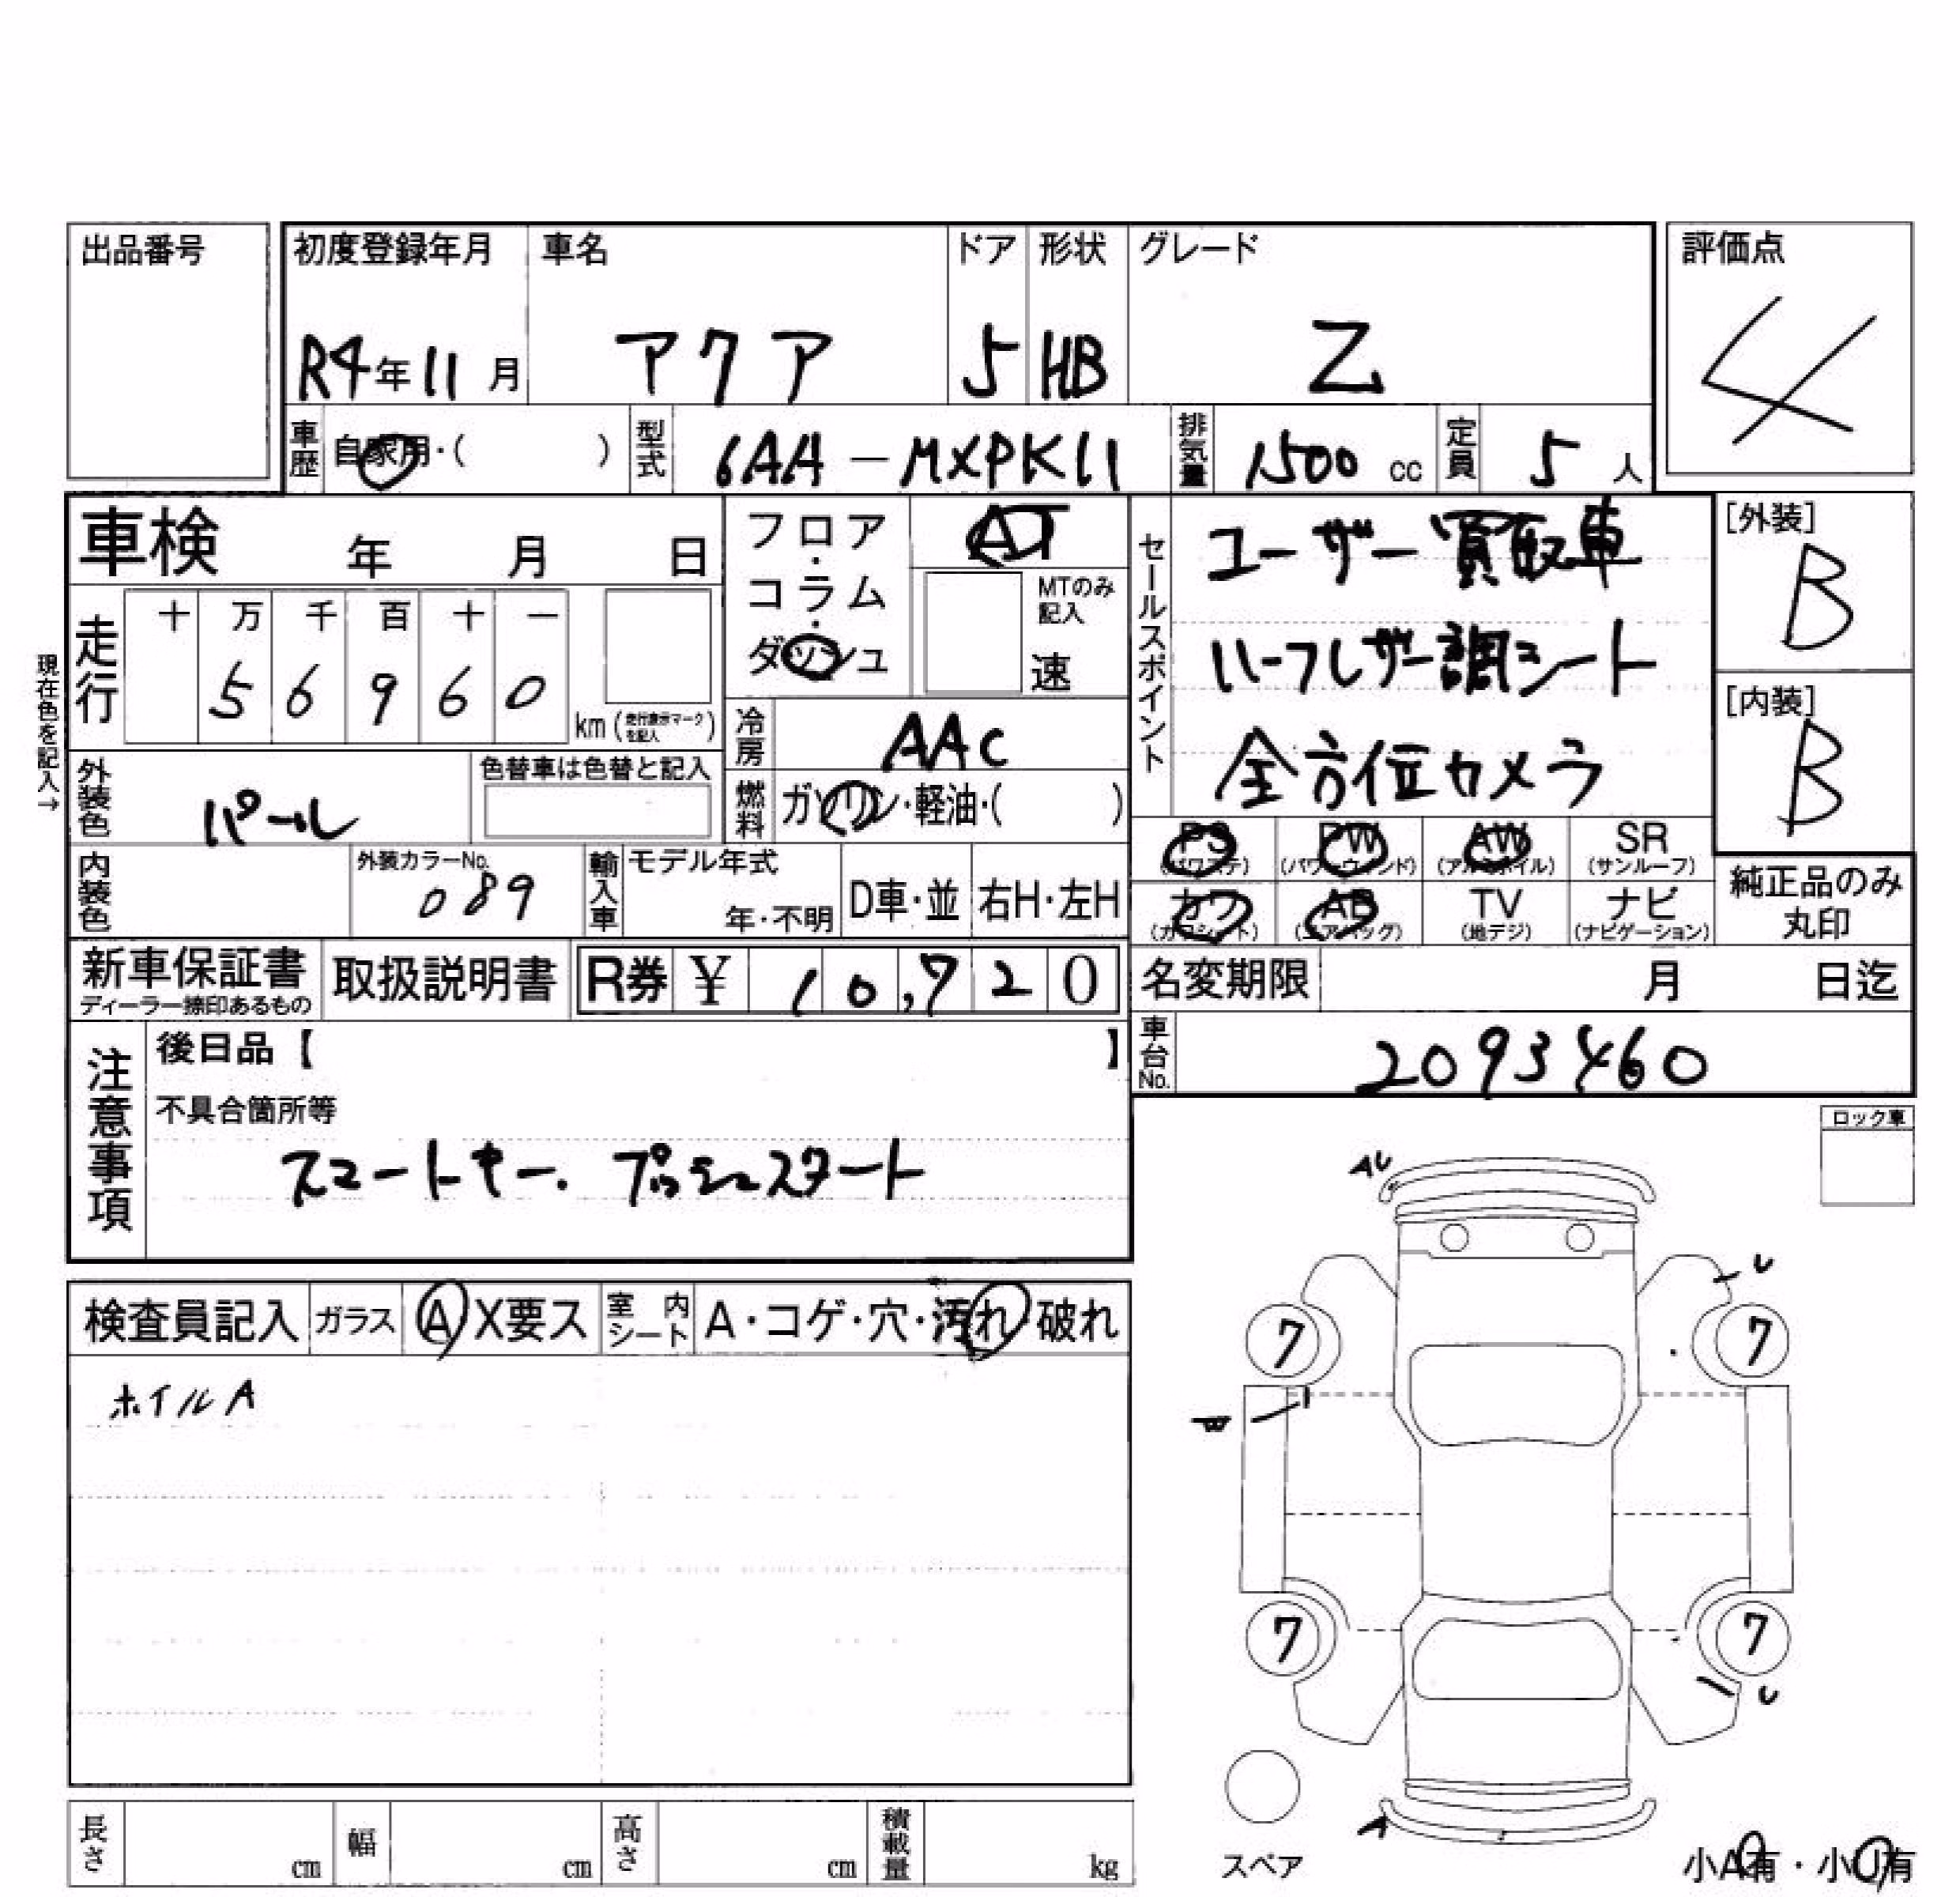 出品番号
初度登録年月 車名 ドア 形状 グレード 評価点
R4年11月 アクア 5 HB Z 4
車歴 自家用・( ) 型式 6AA-MXPK11 排気量 1500 cc 定員 5 人
車検 年 月 日
フロア・コラム・ダッシュ AT
MTのみ記入 速
セールスポイント
ユーザー買取車
ハーフレザー調シート
全方位カメラ
[外装] B
[内装] B
現在色を記入→
走行 十 万 千 百 十 一
5 6 9 6 0 km (走行表示マークを記入)
冷房 AAC
外装色 パール 色替車は色替と記入
燃料 ガソリン・軽油・( )
PS (パワステ) PW (パワーウィンド) AW (アルミホイル) SR (サンルーフ)
カワ (カワシート) AB (エアバッグ) TV (地デジ) ナビ (ナビゲーション)
純正品のみ丸印
内装色 外装カラーNo. 089 輸入車 モデル年式 年・不明 D車・並 右H・左H
新車保証書 ディーラー捺印あるもの 取扱説明書 R券 ¥ 10,720
名変期限 月 日迄
車台No. 2093460
注意事項 後日品【 】
不具合箇所等
スマートキー. プッシュスタート
ロック車
検査員記入 ガラス A X要ス 室内シート A・コゲ・穴・汚れ 破れ
ホイルA
AU
U
7 7
W
7 7
U
A
スペア
小A有・小U有
長さ cm 幅 cm 高さ cm 積載量 kg